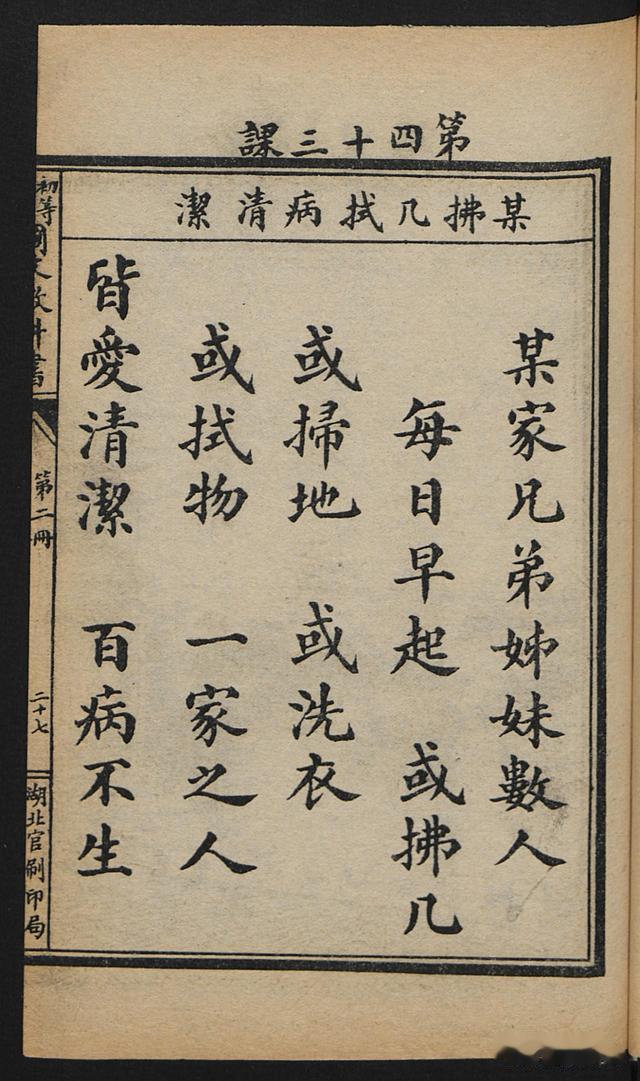 第四十三課
某拂几拭病清潔
某家兄弟姊妹數人
每日早起　或拂几
或掃地　或洗衣
或拭物　一家之人
皆愛清潔　百病不生
初等國文教科書
第二冊
二十七
湖北官刷印局